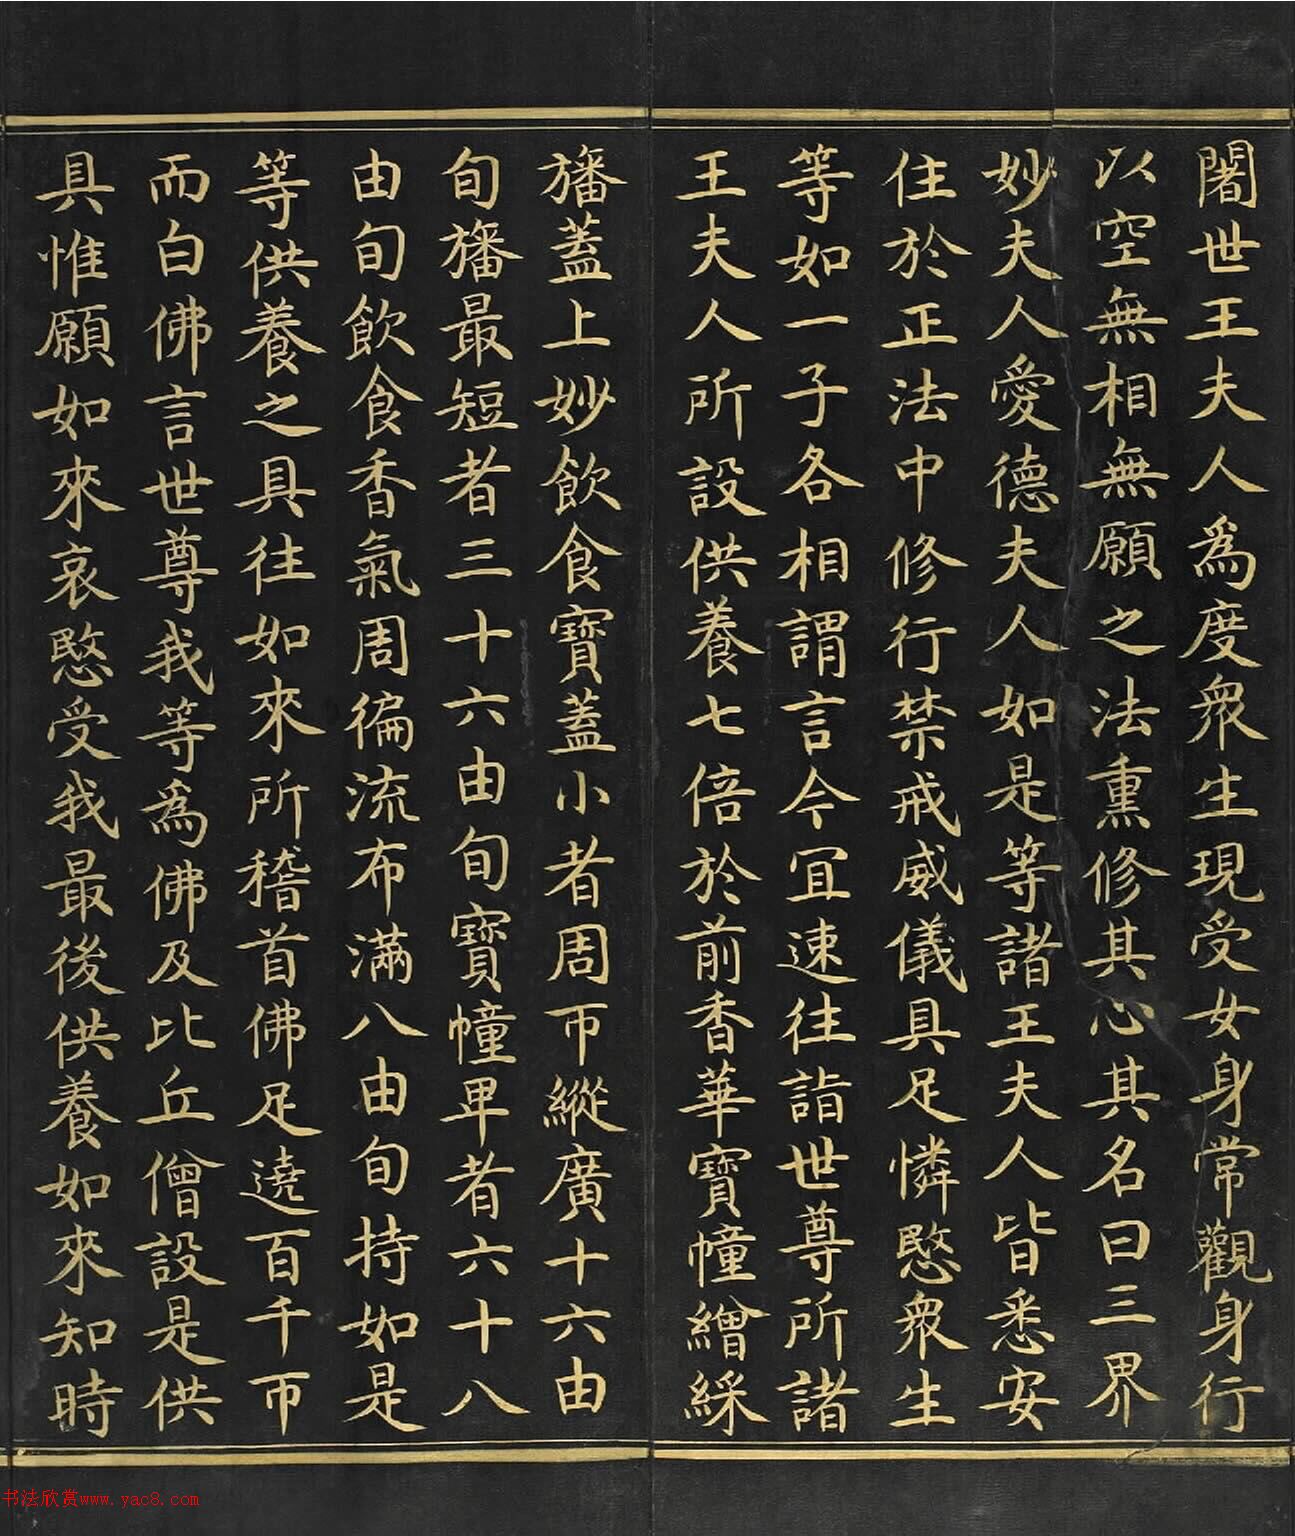 闍世王夫人為度眾生現受女身常觀身行
以空無相無願之法熏修其心其名曰三界
妙夫人愛德夫人如是等諸王夫人皆悉安
住於正法中修行禁戒威儀具足憐愍眾生
等如一子各相謂言今宜速往詣世尊所諸
王夫人所設供養七倍於前香華寶幢繒綵
旛蓋上妙飲食寶蓋小者周帀縱廣十六由
旬旛最短者三十六由旬寶幢卑者六十八
由旬飲食香氣周徧流布滿八由旬持如是
等供養之具往如來所稽首佛足遶百千帀
而白佛言世尊我等為佛及比丘僧設是供
具惟願如來哀愍受我最後供養如來知時
书法欣赏www.yac8.com